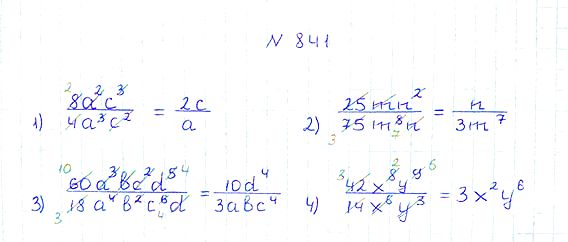 N 841
1) 8a²c³ / 4a³c² = 2c / a
2) 25mn² / 75m⁸n = n / 3m⁷
3) 60a³bc²d⁵ / 18a⁴b²c⁶d = 10d⁴ / 3abc⁴
4) 42x⁸y⁹ / 14x⁶y³ = 3x²y⁶